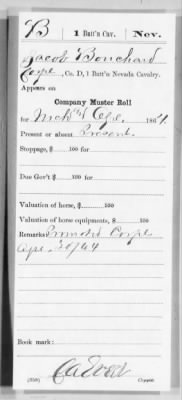 B 1 Batt'n Cav. Nev.
Jacob Bouchard
Corpl, Co. D, 1 Batt'n Nevada Cavalry.
Appears on
Company Muster Roll
for Mch & Apl, 1864.
Present or absent Present
Stoppage, $ 100 for
Due Gov't $ 100 for
Valuation of horse, $ 100
Valuation of horse equipments, $ 100
Remarks: Promoted Corpl
Apr 20/64
Book mark:
(358) Copyist.